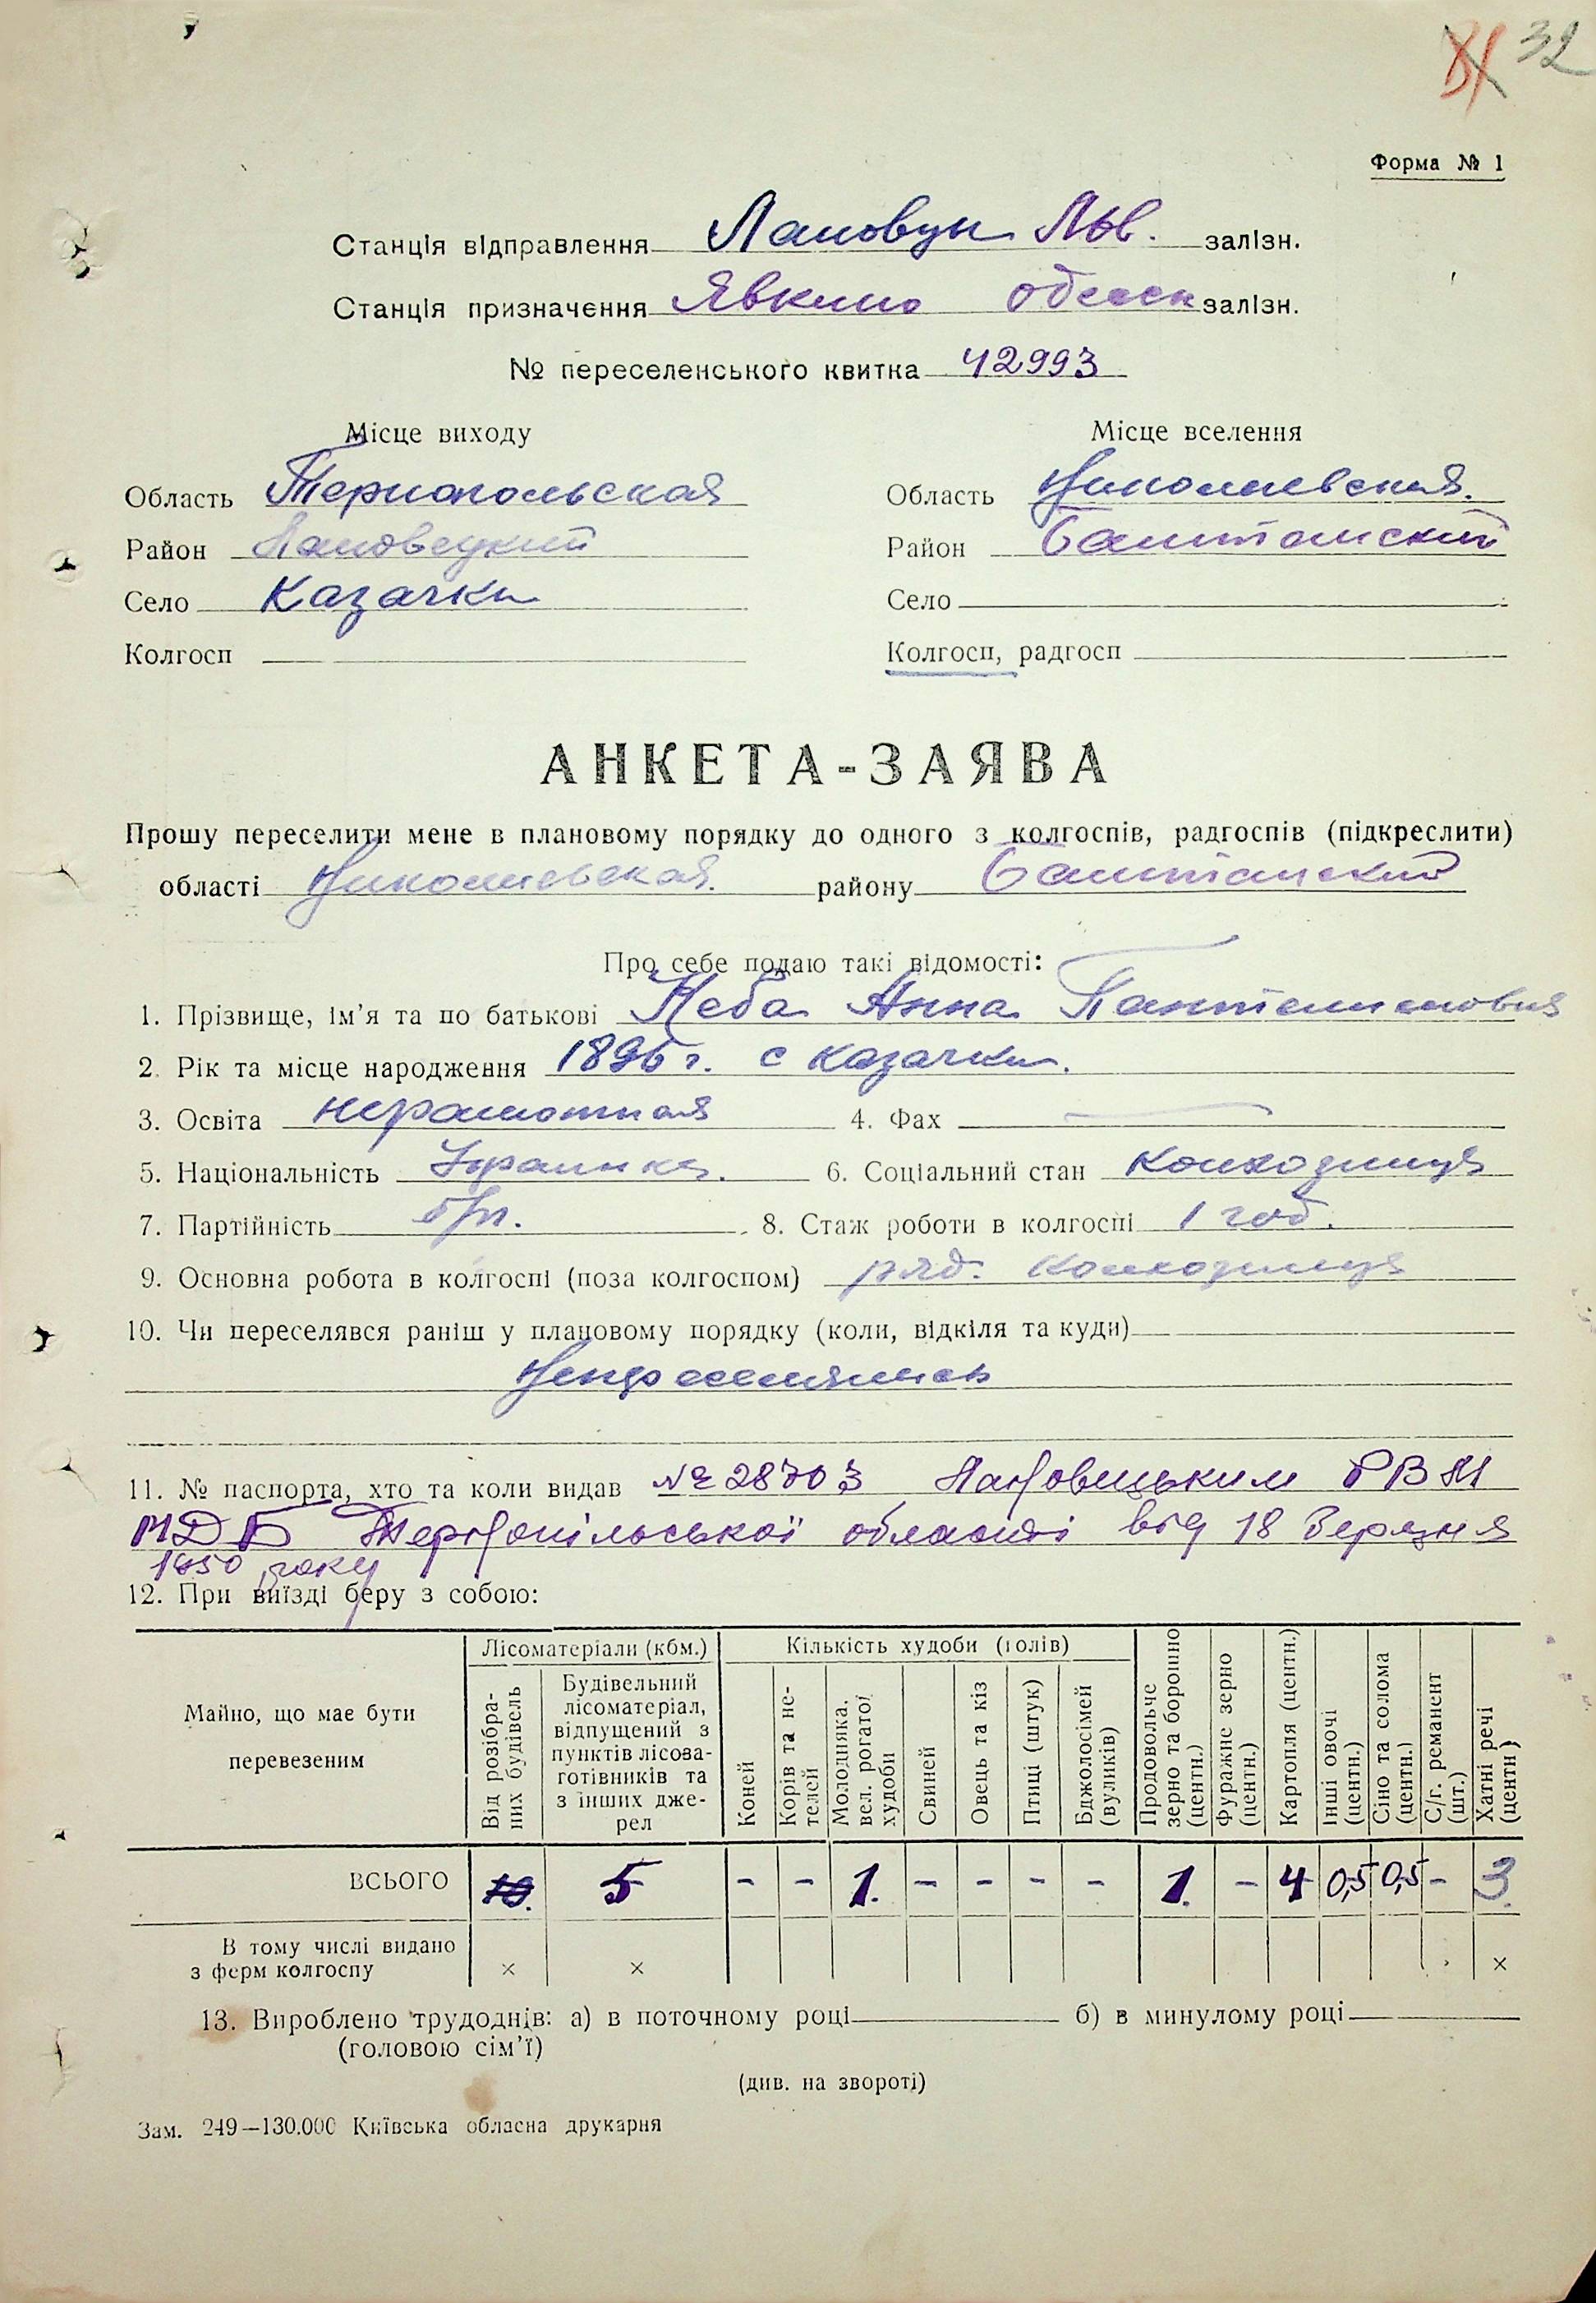 31 32
Форма № 1
Станція відправлення Лановцы Льв. залізн.
Станція призначення Явкино Одесск залізн.
№ переселенського квитка 42993
Місце виходу Місце вселення
Область Тернопольская Область Николаевская.
Район Лановецкий Район Баштанский
Село Казачки Село
Колгосп Колгосп, радгосп
АНКЕТА-ЗАЯВА
Прошу переселити мене в плановому порядку до одного з колгоспів, радгоспів (підкреслити)
області Николаевская. району Баштанский
Про себе подаю такі відомості:
1. Прізвище, ім’я та по батькові Кеба Анна Пантелимоновна
2. Рік та місце народження 1896 г. с Казачки.
3. Освіта неграмотная 4. Фах —
5. Національність Украинка. 6. Соціальний стан Колхозница
7. Партійність б/п. 8. Стаж роботи в колгоспі 1 год.
9. Основна робота в колгоспі (поза колгоспом) ряд. колхозница
10. Чи переселявся раніш у плановому порядку (коли, відкіля та куди)
Непереселялась
11. № паспорта, хто та коли видав № 28703 Лановецьким РВМ
МДБ Тернопільської області від 18 Березня
1950 року
12. При виїзді беру з собою:
Майно, що має бути перевезеним
Лісоматеріали (кбм.) Кількість худоби (голів)
Від розібраних будівель
Будівельний
лісоматеріал,
відпущений з
пунктів лісоза-
готівників та
з інших дже-
рел
Коней
Корів та не-
телей
Молодняка,
вел. рогатої
худоби
Свиней
Овець та кіз
Птиці (штук)
Бджолосімей
(вуликів)
Продовольче
зерно та борошно
(центн.)
Фуражне зерно
(центн.)
Картопля (центн.)
Інші овочі
(центн.)
Сіно та солома
(центн.)
С/г. реманент
(шт.)
Хатні речі
(центн)
ВСЬОГО 10. 5 - - 1. - - - - 1. - 4 0,5 0,5 - 3.
В тому числі видано
з ферм колгоспу × × ×
13. Вироблено трудоднів: а) в поточному році б) в минулому році
(головою сім’ї)
(див. на звороті)
Зам. 249—130.000 Київська обласна друкарня